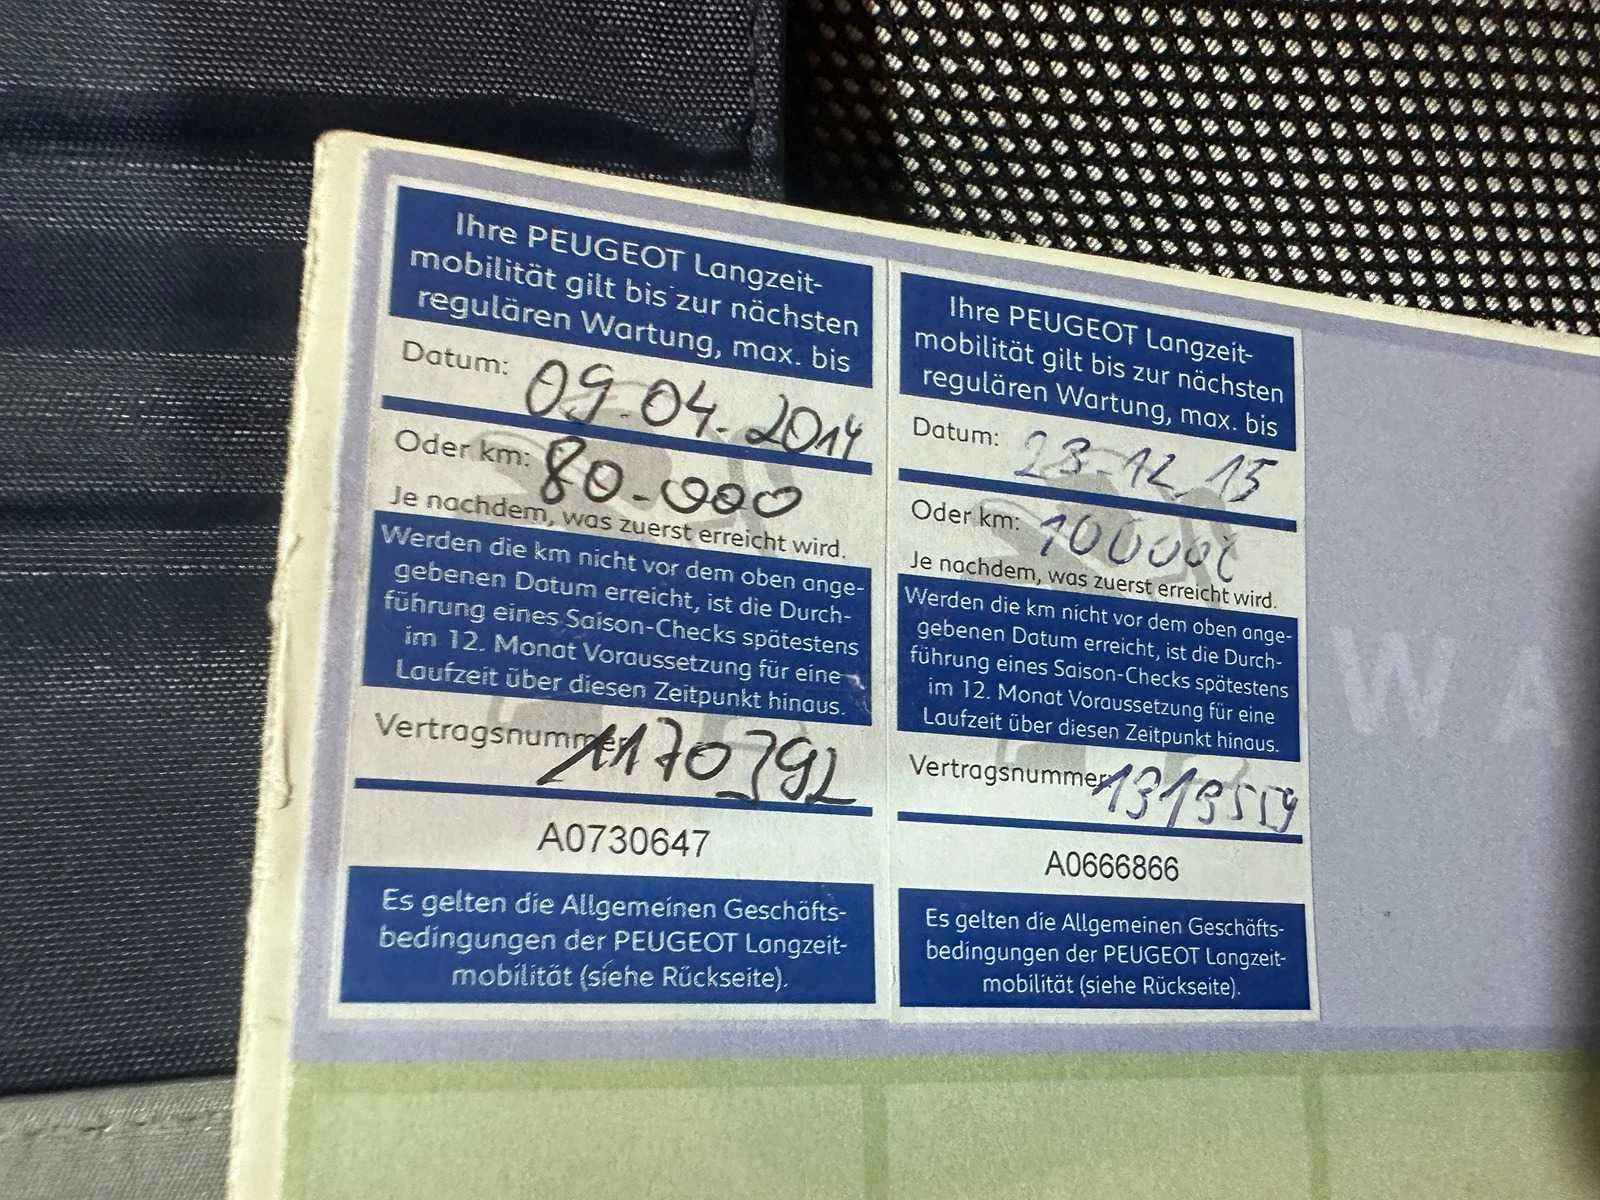 Ihre PEUGEOT Langzeit-
mobilität gilt bis zur nächsten
regulären Wartung, max. bis
Datum: 09.04.2014
Oder km: 80.000
Je nachdem, was zuerst erreicht wird.
Werden die km nicht vor dem oben ange-
gebenen Datum erreicht, ist die Durch-
führung eines Saison-Checks spätestens
im 12. Monat Voraussetzung für eine
Laufzeit über diesen Zeitpunkt hinaus.
Vertragsnummer 1170792
A0730647
Es gelten die Allgemeinen Geschäfts-
bedingungen der PEUGEOT Langzeit-
mobilität (siehe Rückseite).
Ihre PEUGEOT Langzeit-
mobilität gilt bis zur nächsten
regulären Wartung, max. bis
Datum: 23.12.15
Oder km: 100000
Je nachdem, was zuerst erreicht wird.
Werden die km nicht vor dem oben ange-
gebenen Datum erreicht, ist die Durch-
führung eines Saison-Checks spätestens
im 12. Monat Voraussetzung für eine
Laufzeit über diesen Zeitpunkt hinaus.
Vertragsnummer 1319559
A0666866
Es gelten die Allgemeinen Geschäfts-
bedingungen der PEUGEOT Langzeit-
mobilität (siehe Rückseite).
WA